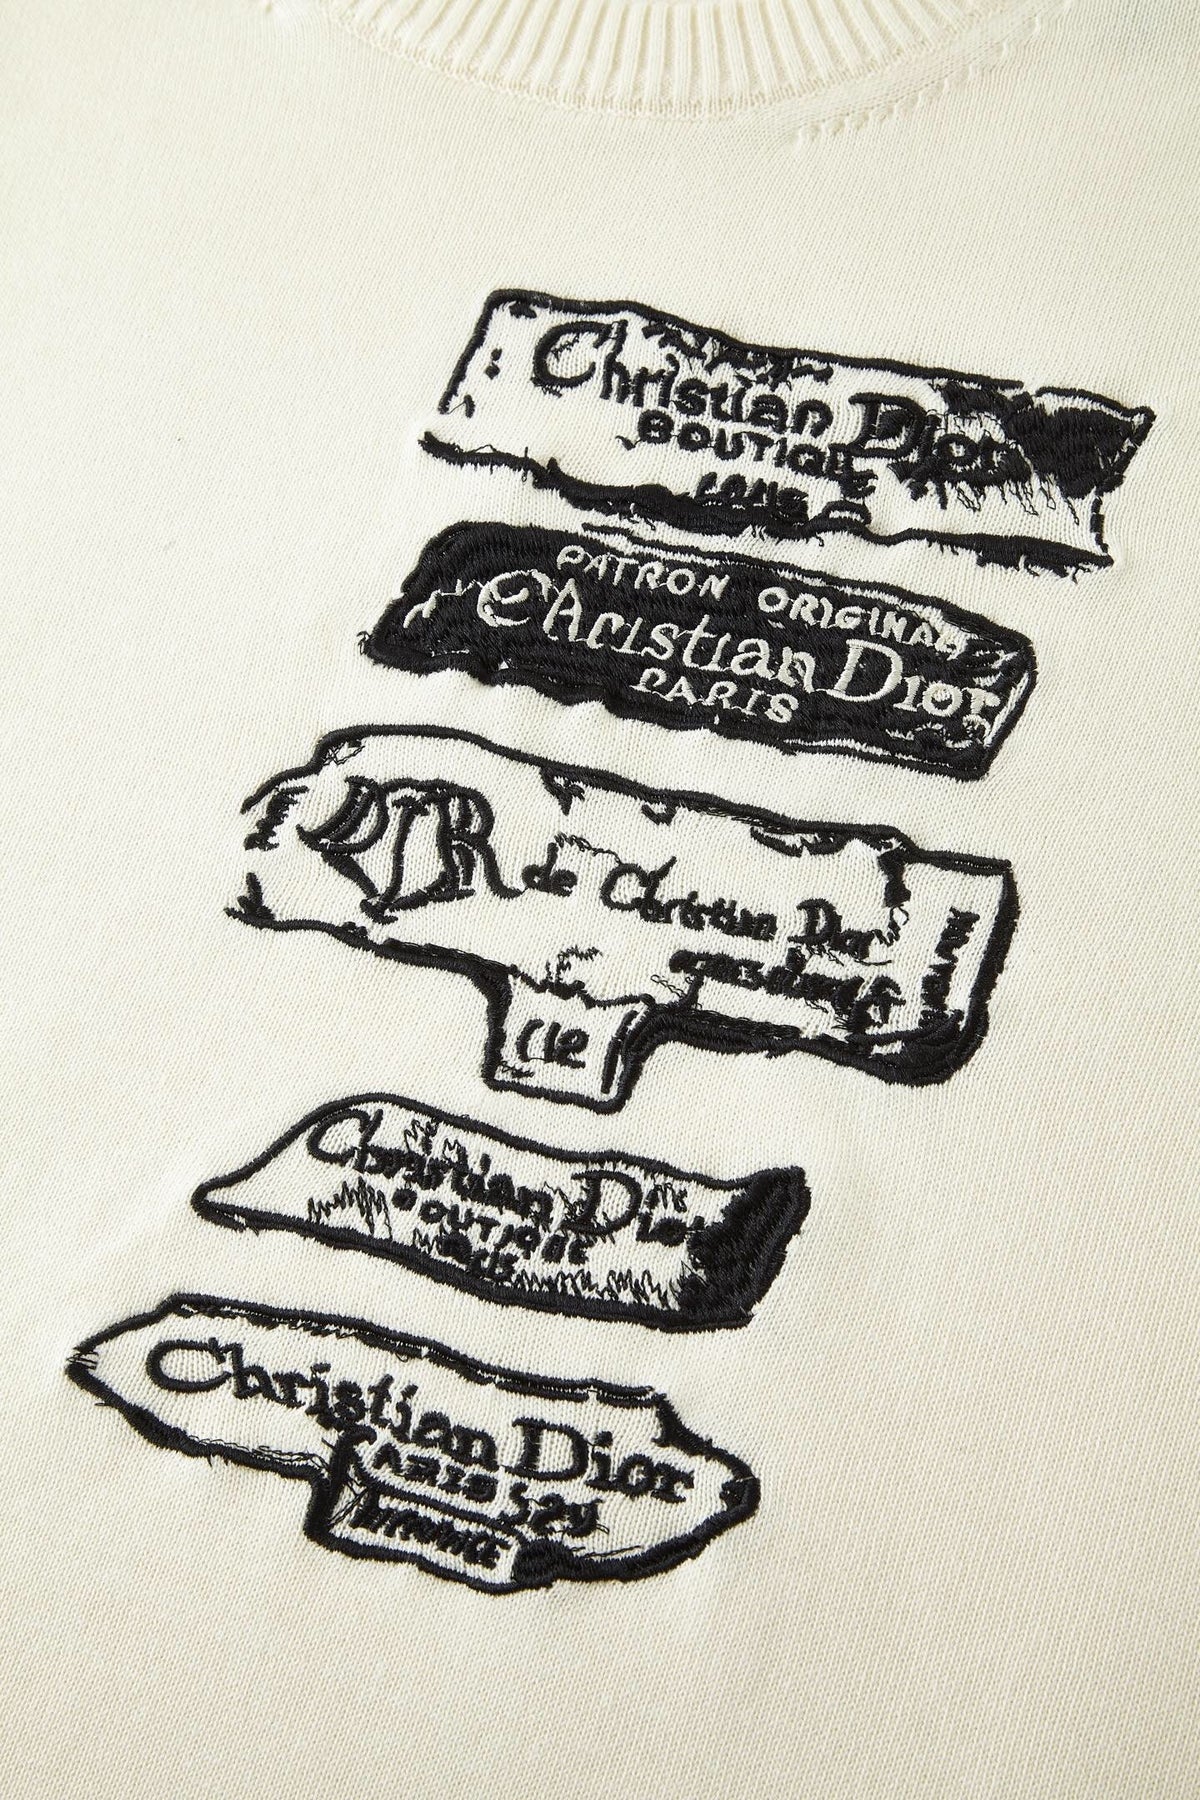 Christian Dior
BOUTIQUE
PATRON ORIGINAL
Christian Dior
PARIS
DIOR de Christian Dior
Christian Dior
BOUTIQUE
PARIS
Christian Dior
PARIS